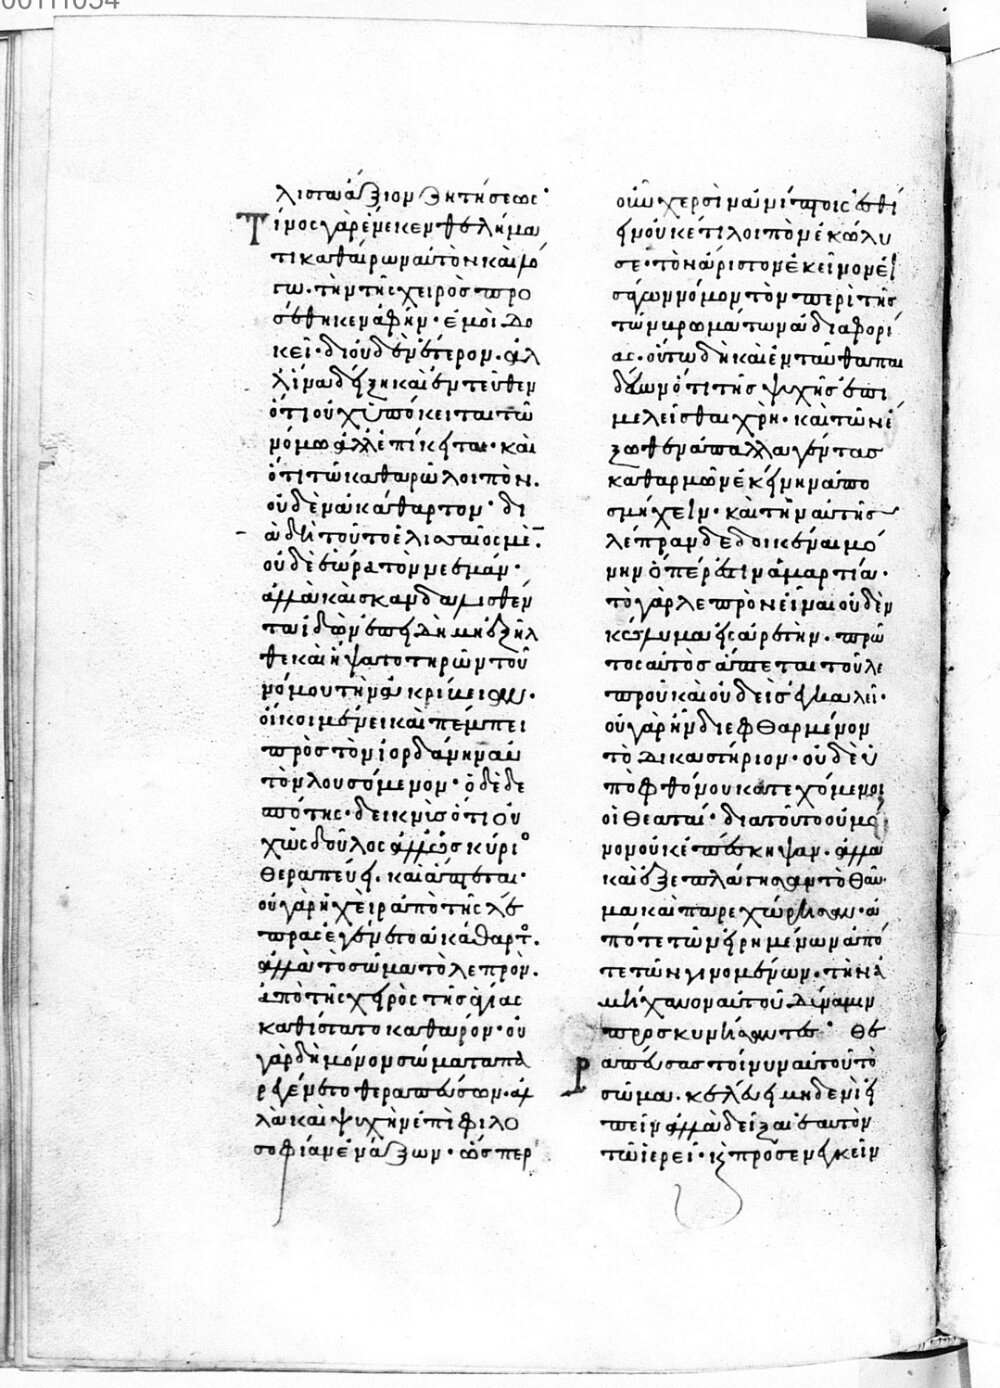 λιστα ἄξιον ζητήσεως·
Τίνος γὰρ ἕνεκεν θελήμα
τι καθαίρων αὐτὸν καὶ λό
γω. τὴν τῆς χειρὸς προ
σέθηκεν ἁφήν· ἐμοὶ δο
κεῖ· δι' οὐδὲν ἕτερον. ἀλ
λ' ἵνα δείξη καὶ ἐντεῦθεν
ὅτι οὐχ ὑπόκειται τῶ
νόμω ἀλλ' ἐπίκειται· καὶ
ὅτι τῶ καθαρῶ λοιπὸν.
οὐδὲν ἀκάθαρτον· δι
ὰ δὴ τοῦτο ἐλισσαῖος μὲν
οὐδὲ ἑώρα τὸν νεεμάν·
ἀλλὰ καὶ σκανδαλισθέν
τα ἰδὼν ἐπειδὴ μὴ ἐξῆλ
θε καὶ ἥψατο τηρῶν τοῦ
νόμου τὴν ἀκρίβειαν.
οἴκοι μένει καὶ πέμπει
πρὸς τὸν ἰορδάνην αὐ
τὸν λουσόμενον· ὁ δὲ δε
σπότης· δεικνὺς ὅτι οὐ
χ ὡς δοῦλος ἀλλ' ὡς κύριος
θεραπεύει. καὶ ἅπτεται·
οὐ γὰρ ἡ χεὶρ ἀπὸ τῆς λέ
πρας ἐγένετο ἀκάθαρτος.
ἀλλὰ τὸ σῶμα τὸ λεπρὸν.
ἀπὸ τῆς χειρὸς τῆς ἁγίας
καθίστατο καθαρόν· οὐ
γὰρ δὴ μόνον σώματα πα
ρεγένετο θεραπεύσων. ἀλ
λὰ καὶ ψυχὴν ἐπὶ φιλο
σοφίαν ἐνάξων· ὥσπερ
οὖν χερσὶν ἀνίπτοις ἐσθί
ειν οὐκέτι λοιπὸν ἐκώλυ
σε· τὸν ἄριστον ἐκεῖνον εἰ
σάγων νόμον τὸν περὶ τῆς
τῶν βρωμάτων ἀδιαφορί
ας. οὕτω δὴ καὶ ἐνταῦθα παι
δεύων ὅτι τῆς ψυχῆς ἐπι
μελεῖσθαι χρὴ. καὶ τῶν ἔ
ξωθεν ἀπαλλαγέντας
καθαρμῶν ἐκείνην ἀπο
σμήχειν. καὶ τὴν αὐτῆς
λέπραν δεδοικέναι μό
νην ὅπερ ἐστὶν ἁμαρτία.
τὸ γὰρ λεπρὸν εἶναι οὐδὲν
κώλυμα εἰς ἀρετὴν. πρῶ
τος αὐτὸς ἅπτεται τοῦ λε
προῦ καὶ οὐδεὶς ἐγκαλεῖ.
οὐ γὰρ ἦν διεφθαρμένον
τὸ δικαστήριον. οὐδὲ ὑ
πὸ φθόνου κατεχόμενοι
οἱ θεαταί. διὰ τοῦτο οὐ μό
νον οὐκ ἐπέσκηψαν. ἀλλὰ
καὶ ἐξεπλάγησαν τὸ θαῦ
μα καὶ παρεχώρησαν. ἀ
πό τε τῶν εἰρημένων ἀπό
τε τῶν γινομένων. τὴν ἀ
μήχανον αὐτοῦ δύναμιν
προσκυνήσαντες· Θε
ραπεύσας τοίνυν αὐτοῦ τὸ
σῶμα. κελεύει μηδενὶ εἰ
πεῖν ἀλλὰ δεῖξαι ἑαυτὸν
τῶ ἱερεῖ. κ προσενεγκεῖν